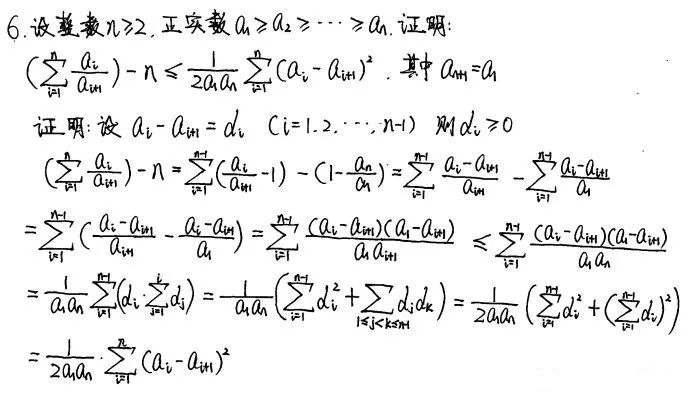 6. 设整数n≥2, 正实数 a₁≥a₂≥⋯≥aₙ. 证明:
(∑_{i=1}^{n} a_i/a_{i+1}) - n ≤ 1/(2a₁aₙ) ∑_{i=1}^{n} (a_i - a_{i+1})². 其中 a_{n+1}=a₁
证明: 设 a_i - a_{i+1} = d_i (i=1.2.⋯,n-1) 则 d_i ≥0
(∑_{i=1}^{n} a_i/a_{i+1}) - n = ∑_{i=1}^{n-1} (a_i/a_{i+1} - 1) - (1 - aₙ/a₁) = ∑_{i=1}^{n-1} (a_i - a_{i+1})/a_{i+1} - ∑_{i=1}^{n-1} (a_i - a_{i+1})/a₁
= ∑_{i=1}^{n-1} ((a_i - a_{i+1})/a_{i+1} - (a_i - a_{i+1})/a₁) = ∑_{i=1}^{n-1} (a_i - a_{i+1})(a₁ - a_{i+1})/(a₁a_{i+1}) ≤ ∑_{i=1}^{n-1} (a_i - a_{i+1})(a₁ - a_{i+1})/(a₁aₙ)
= 1/(a₁aₙ) ∑_{i=1}^{n-1} (d_i · ∑_{j=1}^{i} d_j) = 1/(a₁aₙ) (∑_{i=1}^{n-1} d_i² + ∑_{1≤j<k≤n-1} d_j d_k) = 1/(2a₁aₙ) (∑_{i=1}^{n-1} d_i² + (∑_{i=1}^{n-1} d_i)²)
= 1/(2a₁aₙ) · ∑_{i=1}^{n} (a_i - a_{i+1})²